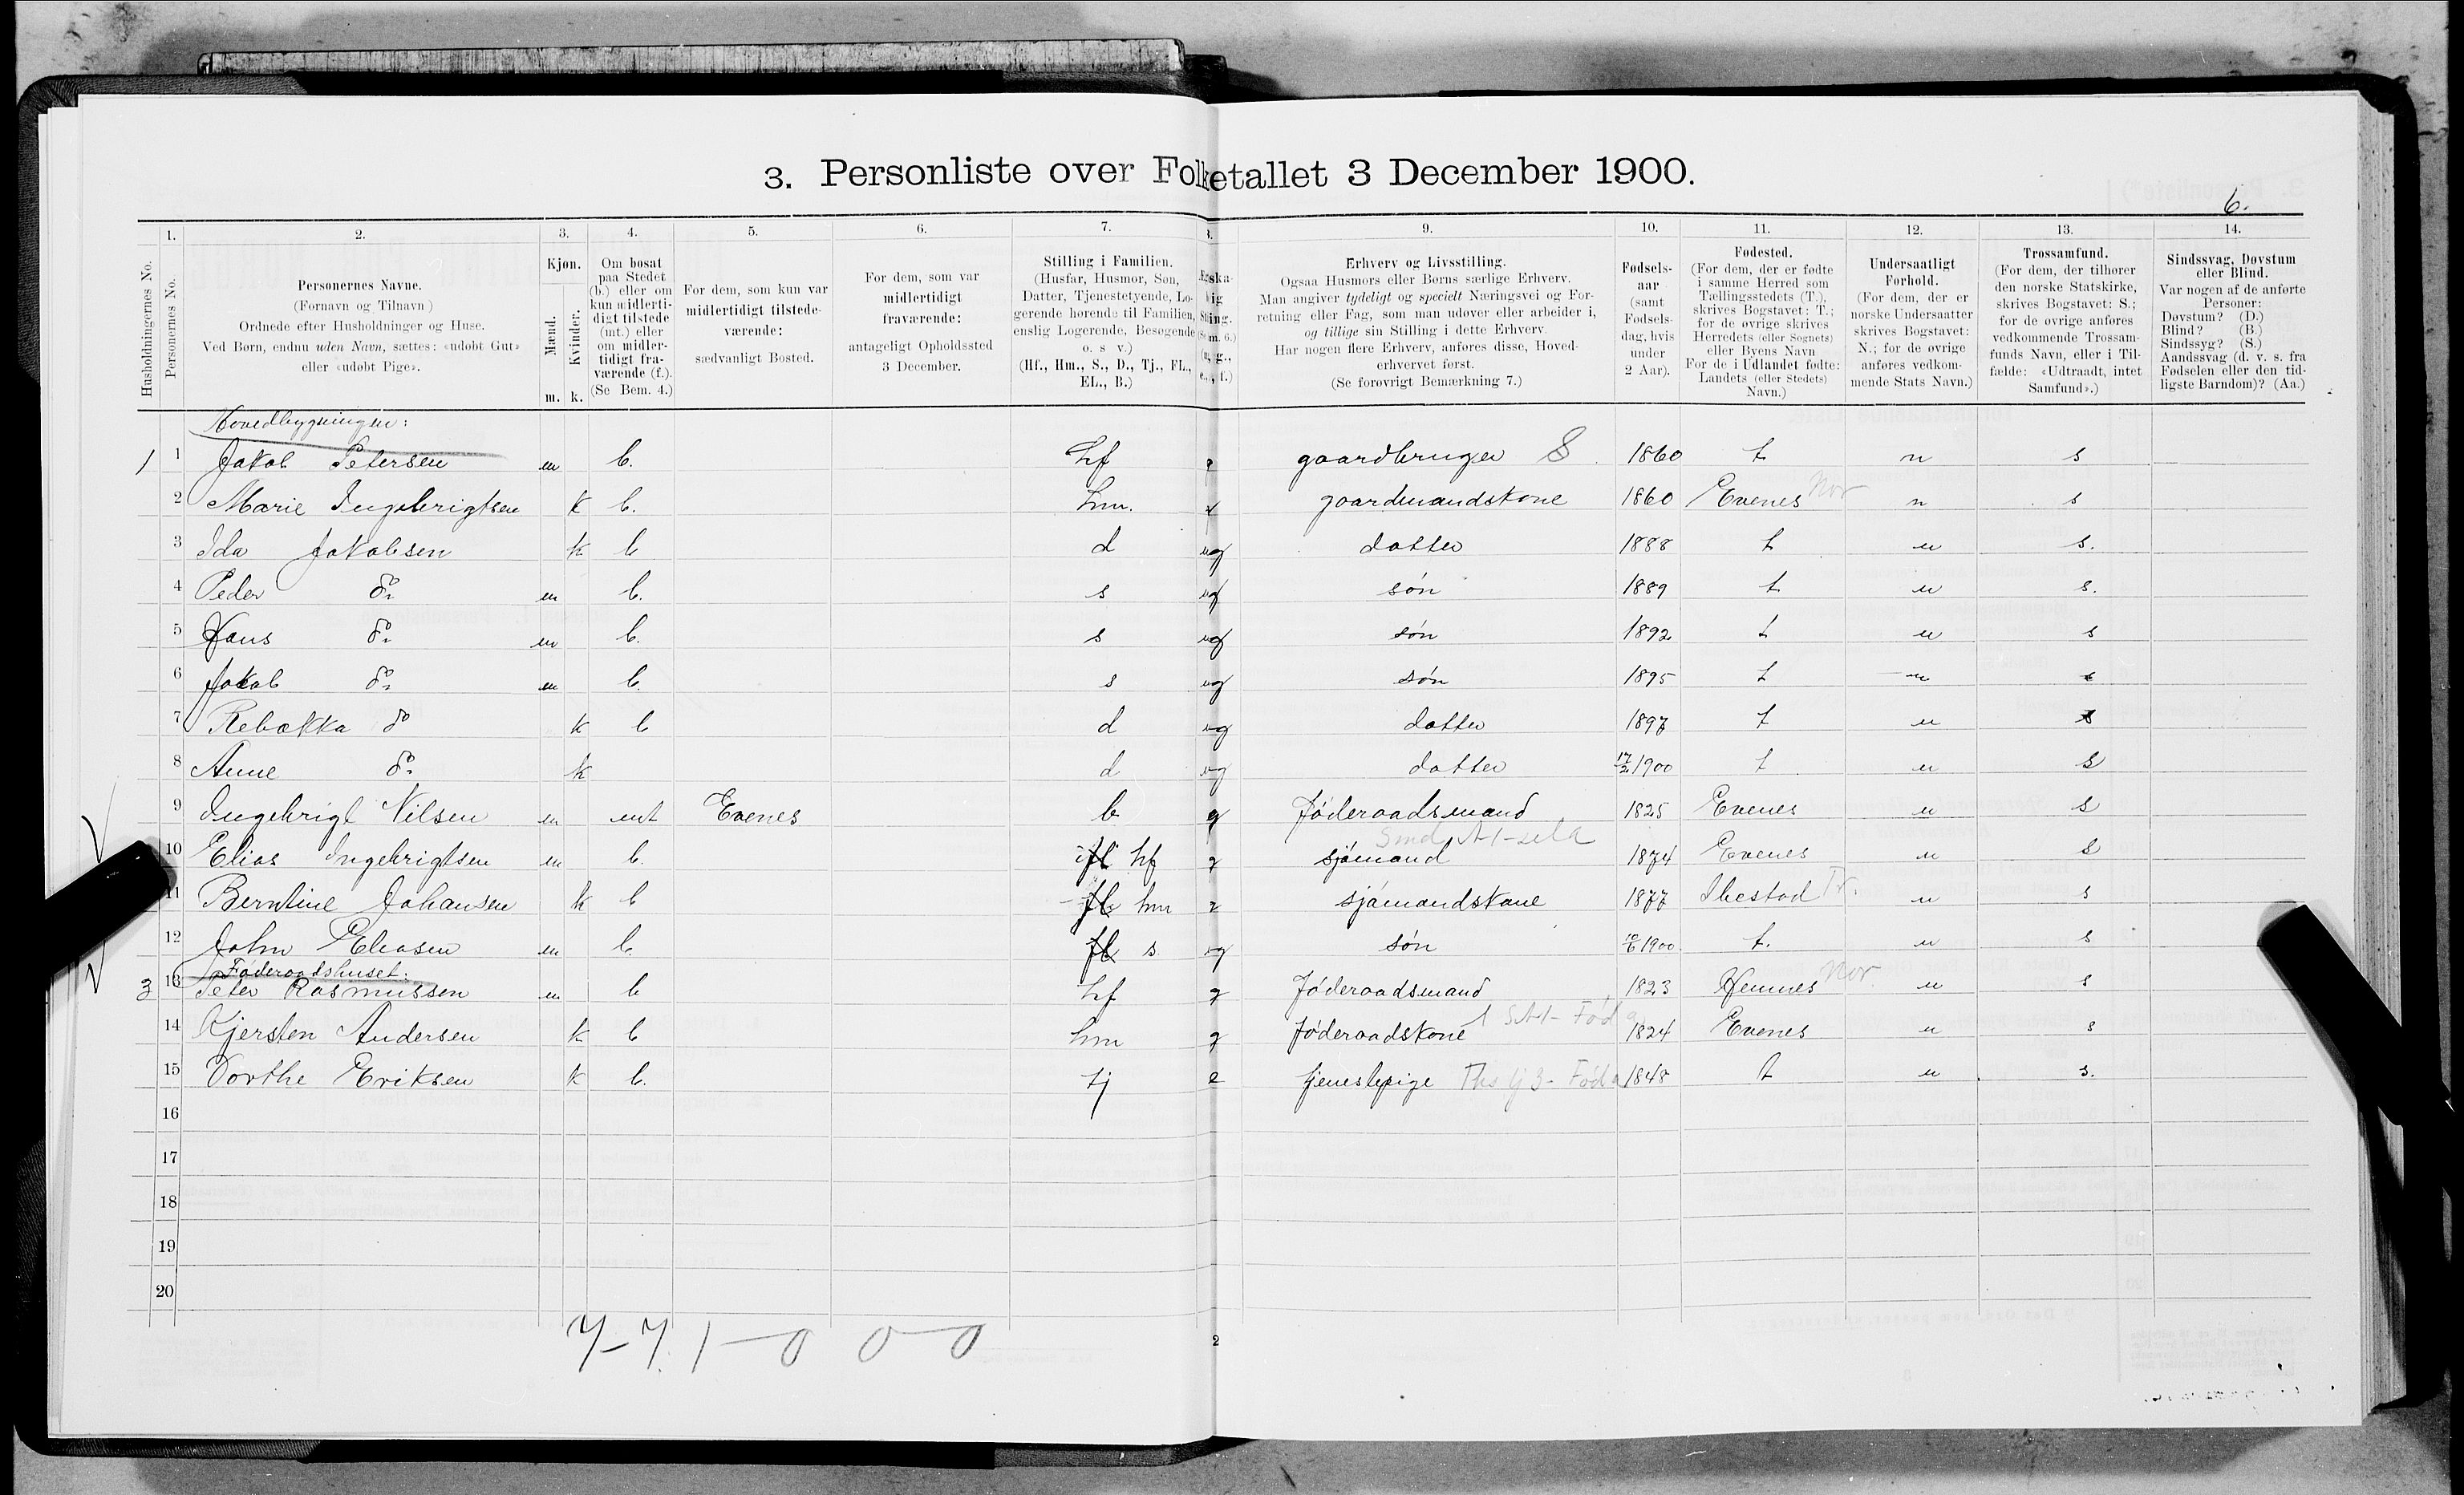 3. Personliste over Folketallet 3 December 1900.
6.
1. 2. 3. 4. 5. 6. 7. 8. 9. 10. 11. 12. 13. 14.
Husholdningernes No.
Personernes No.
Personernes Navne.
(Fornavn og Tilnavn)
Ordnede efter Husholdninger og Huse.
Ved Børn, endnu uden Navn, sættes: «udøbt Gut»
eller «udøbt Pige».
Kjøn.
Mænd.
Kvinder.
m. k.
Om bosat
paa Stedet
(b.) eller om
kun midlerti-
digt tilstede
(mt.) eller
om midler-
tidigt fra-
værende (f.).
(Se Bem. 4.)
For dem, som kun var
midlertidigt tilstede-
værende:
sædvanligt Bosted.
For dem, som var
midlertidigt
fraværende:
antageligt Opholdssted
3 December.
Stilling i Familien.
(Husfar, Husmor, Søn,
Datter, Tjenestetyende, Lo-
gerende hørende til Familien,
enslig Logerende, Besøgende
o. s v.)
(Hf., Hm., S., D., Tj., FL.,
EL., B.)
Erhverv og Livsstilling.
Ogsaa Husmors eller Børns særlige Erhverv.
Man angiver tydeligt og specielt Næringsvei og For-
retning eller Fag, som man udøver eller arbeider i,
og tillige sin Stilling i dette Erhverv.
Har nogen flere Erhverv, anføres disse, Hoved-
erhvervet først.
(Se forøvrigt Bemærkning 7.)
Fødsels-
aar
(samt
Fødsels-
dag, hvis
under
2 Aar).
Fødested.
(For dem, der er fødte
i samme Herred som
Tællingsstedets (T.),
skrives Bogstavet: T.;
for de øvrige skrives
Herredets (eller Sognets)
eller Byens Navn
For de i Udlandet fødte:
Landets (eller Stedets)
Navn.)
Undersaatligt
Forhold.
(For dem, der er
norske Undersaatter
skrives Bogstavet:
N.; for de øvrige
anføres vedkom-
mende Stats Navn.)
Trossamfund.
(For dem, der tilhører
den norske Statskirke,
skrives Bogstavet: S.;
for de øvrige anføres
vedkommende Trossam-
funds Navn, eller i Til-
fælde: «Udtraadt, intet
Samfund».)
Sindssvag, Døvstum
eller Blind.
Var nogen af de anførte
Personer:
Døvstum? (D.)
Blind? (B.)
Sindssyg? (S.)
Aandssvag (d. v. s. fra
Fødselen eller den tid-
ligste Barndom)? (Aa.)
Hovedbygningen:
1 1 Jakob Petersen m b. hf g gaardbruger S 1860 t n s
2 Marie Ingebrigtsen k b. hm. g gaardmandskone 1860 Evenes Nor n s
3 Ida Jakobsen k b d ug datter 1888 t n s.
4 Peder do m b. s ug søn 1889 t n s.
5 Hans do m b. s ug søn 1892 t n s
6 Jakob do m b. s ug søn 1895 t n s
7 Rebækka do k b d ug datter 1897 t n s
8 Anne do k d ug datter 17/2 1900 t n s
9 Ingebrigt Nilsen m mt Evenes b g føderaadsmand 1825 Evenes n s
10 Elias Ingebrigtsen m b. fl hf g sjømand 1874 Evenes n s
11 Berntine Johansen k b fl hm g sjømandskone 1877 Ibestad Tr. n s
12 John Eliasen m b. fl s ug søn 10/6 1900 t. n s
Føderaadshuset:
3 13 Peter Rasmussen m b hf g føderaadsmand 1823 Hemnes Nor n s
14 Kjersten Andersen k b hm g føderaadskone 1824 Evenes n s
15 Dorthe Eriksen k b. tj e tjenestepige 1848 t n s.
16
17
18
19
20
7-7. 1-0 0-0
2